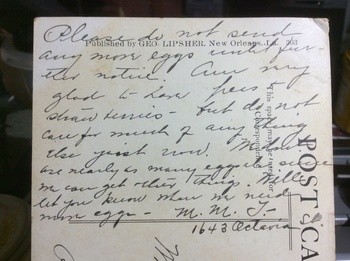 Please do not send
Published by GEO. LIPSHER, New Orleans, La. 793
any more eggs until fur-
ther notice. Am very
glad to have peas &
straw berries - but do not
care for much of any thing
else just now.
are nearly as many eggs
we can get other things. Will
let you know when we need
more eggs - M. M. T.
1643 Octavia
POST CA
This space may be used for